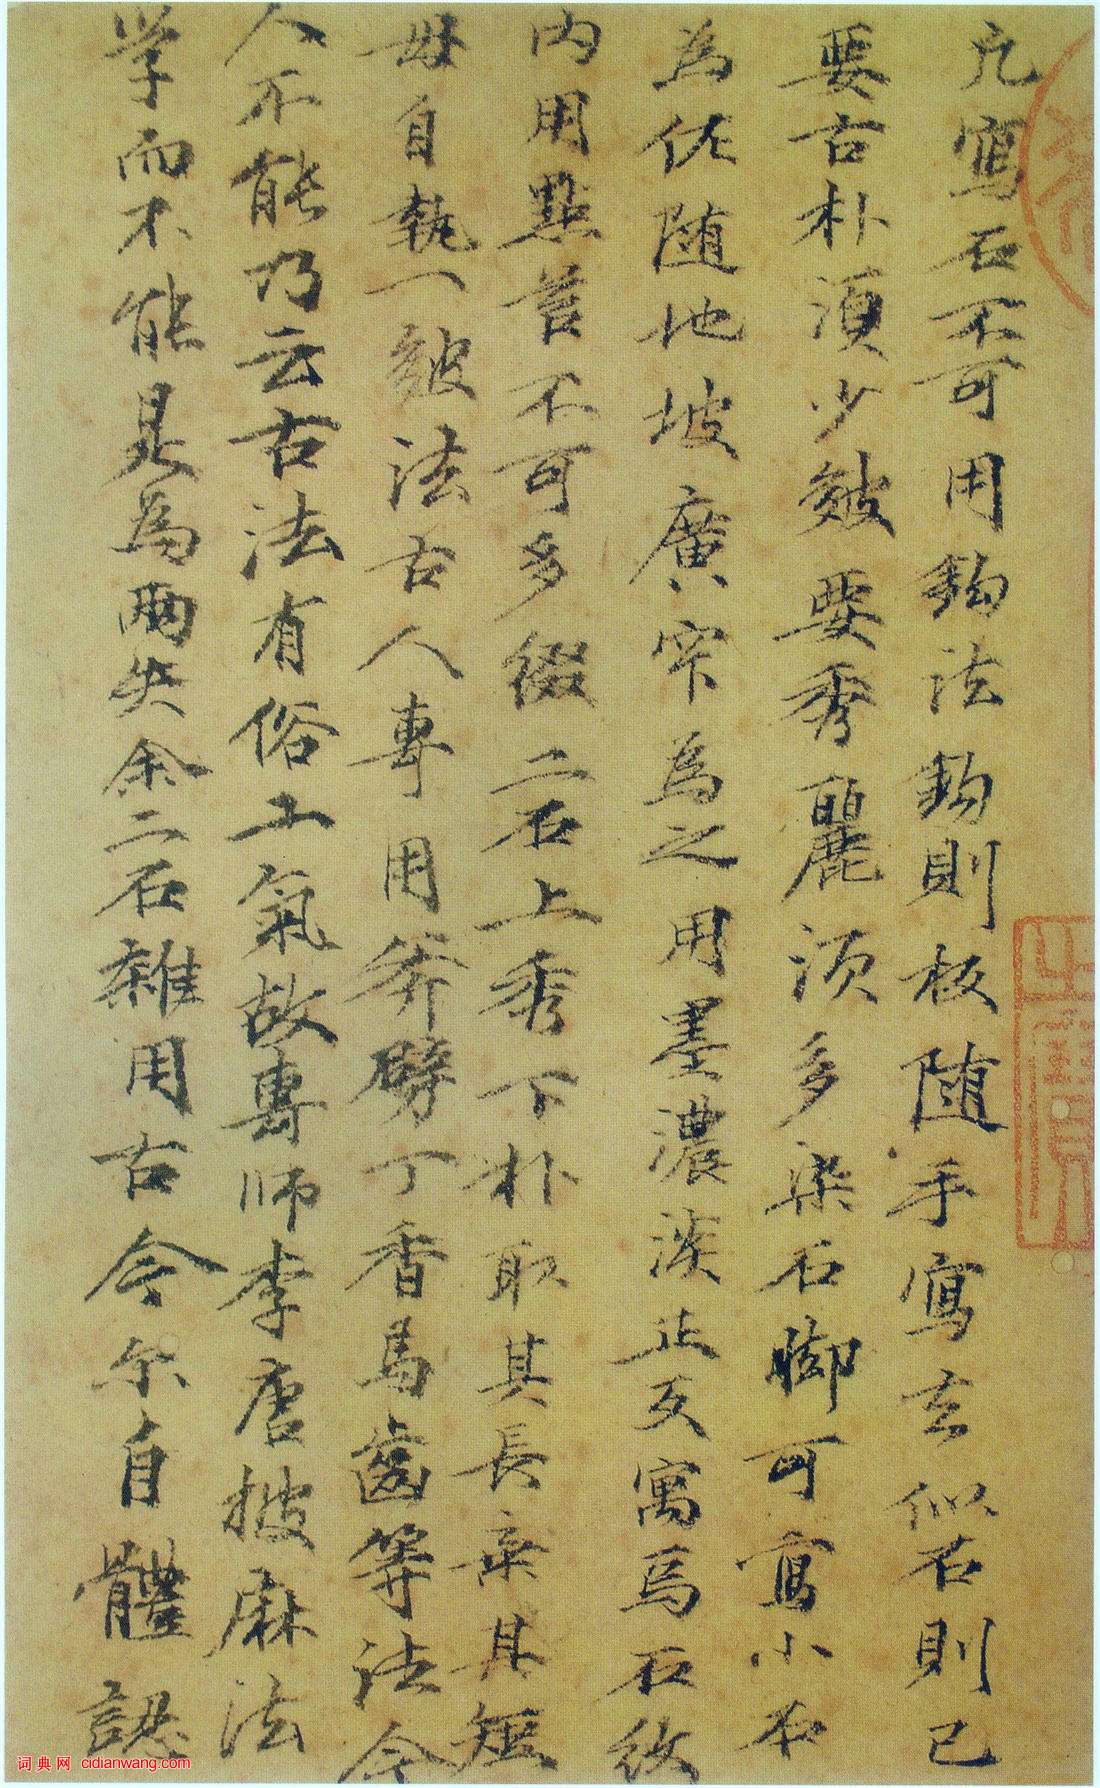 凡寫石不可用鈎法鈎則板随手寫去似石則已
要古朴須少皴要秀麗須多染石脚可高小不
為低随地坡廣窄為之用墨濃淡正反寓焉石紋
内用點苔不可多綴二石上秀下朴取其長棄其短
毋自執一皴法古人專用斧劈丁香馬齒等法今
人不能乃云古法有俗工氣故專師李唐披麻法
学而不能是為兩失余二石雜用古今尔自體認
之寶
词典网 cidianwang.com